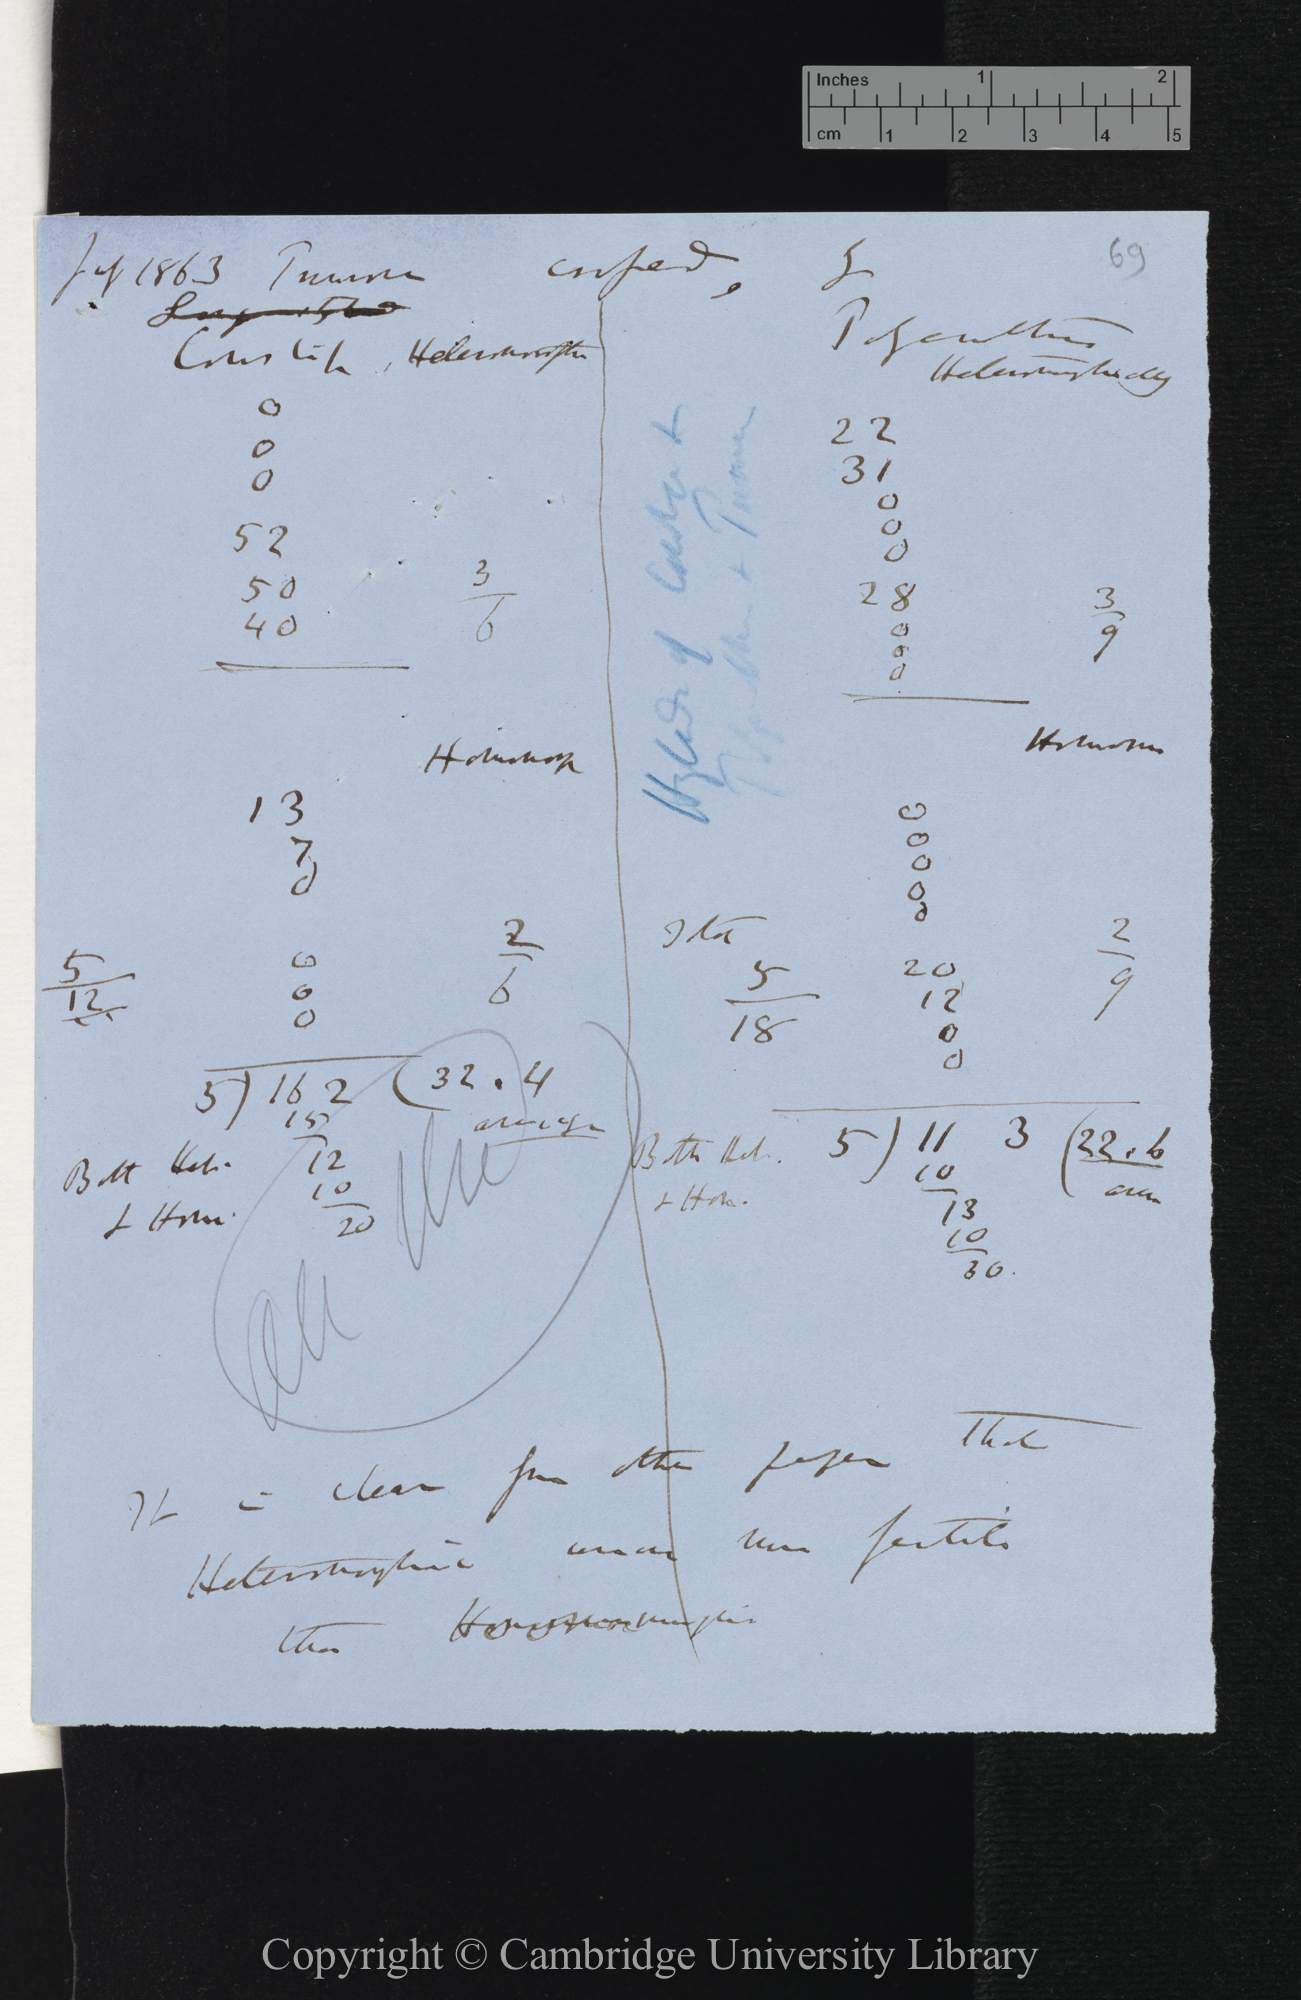 Inches 1 2
cm 1 2 3 4 5
69
1863 Primrose crossed, by
Cowslip, Heteromorphic
0
0
0
52
50
40
3/6
Homomorph
13
7
0
0
0
0
2/6
5/12
5) 162 (32.4
average
15
12
10
20
Both Het.
& Hom.
Polyanthus
Heteromorphically
22
31
0
0
0
28
0
0
0
3/9
Homomor
0
0
0
0
0
20
12
0
0
2/9
Total
5/18
5) 113 (22.6
aver
10
13
10
30.
Both Het.
& Hom.
Hybrids of Cowslip &
Polyanthus & Primrose
All this
It is clear from other paper that
Heteromorphic union more fertile
than Homomorphic
Copyright © Cambridge University Library